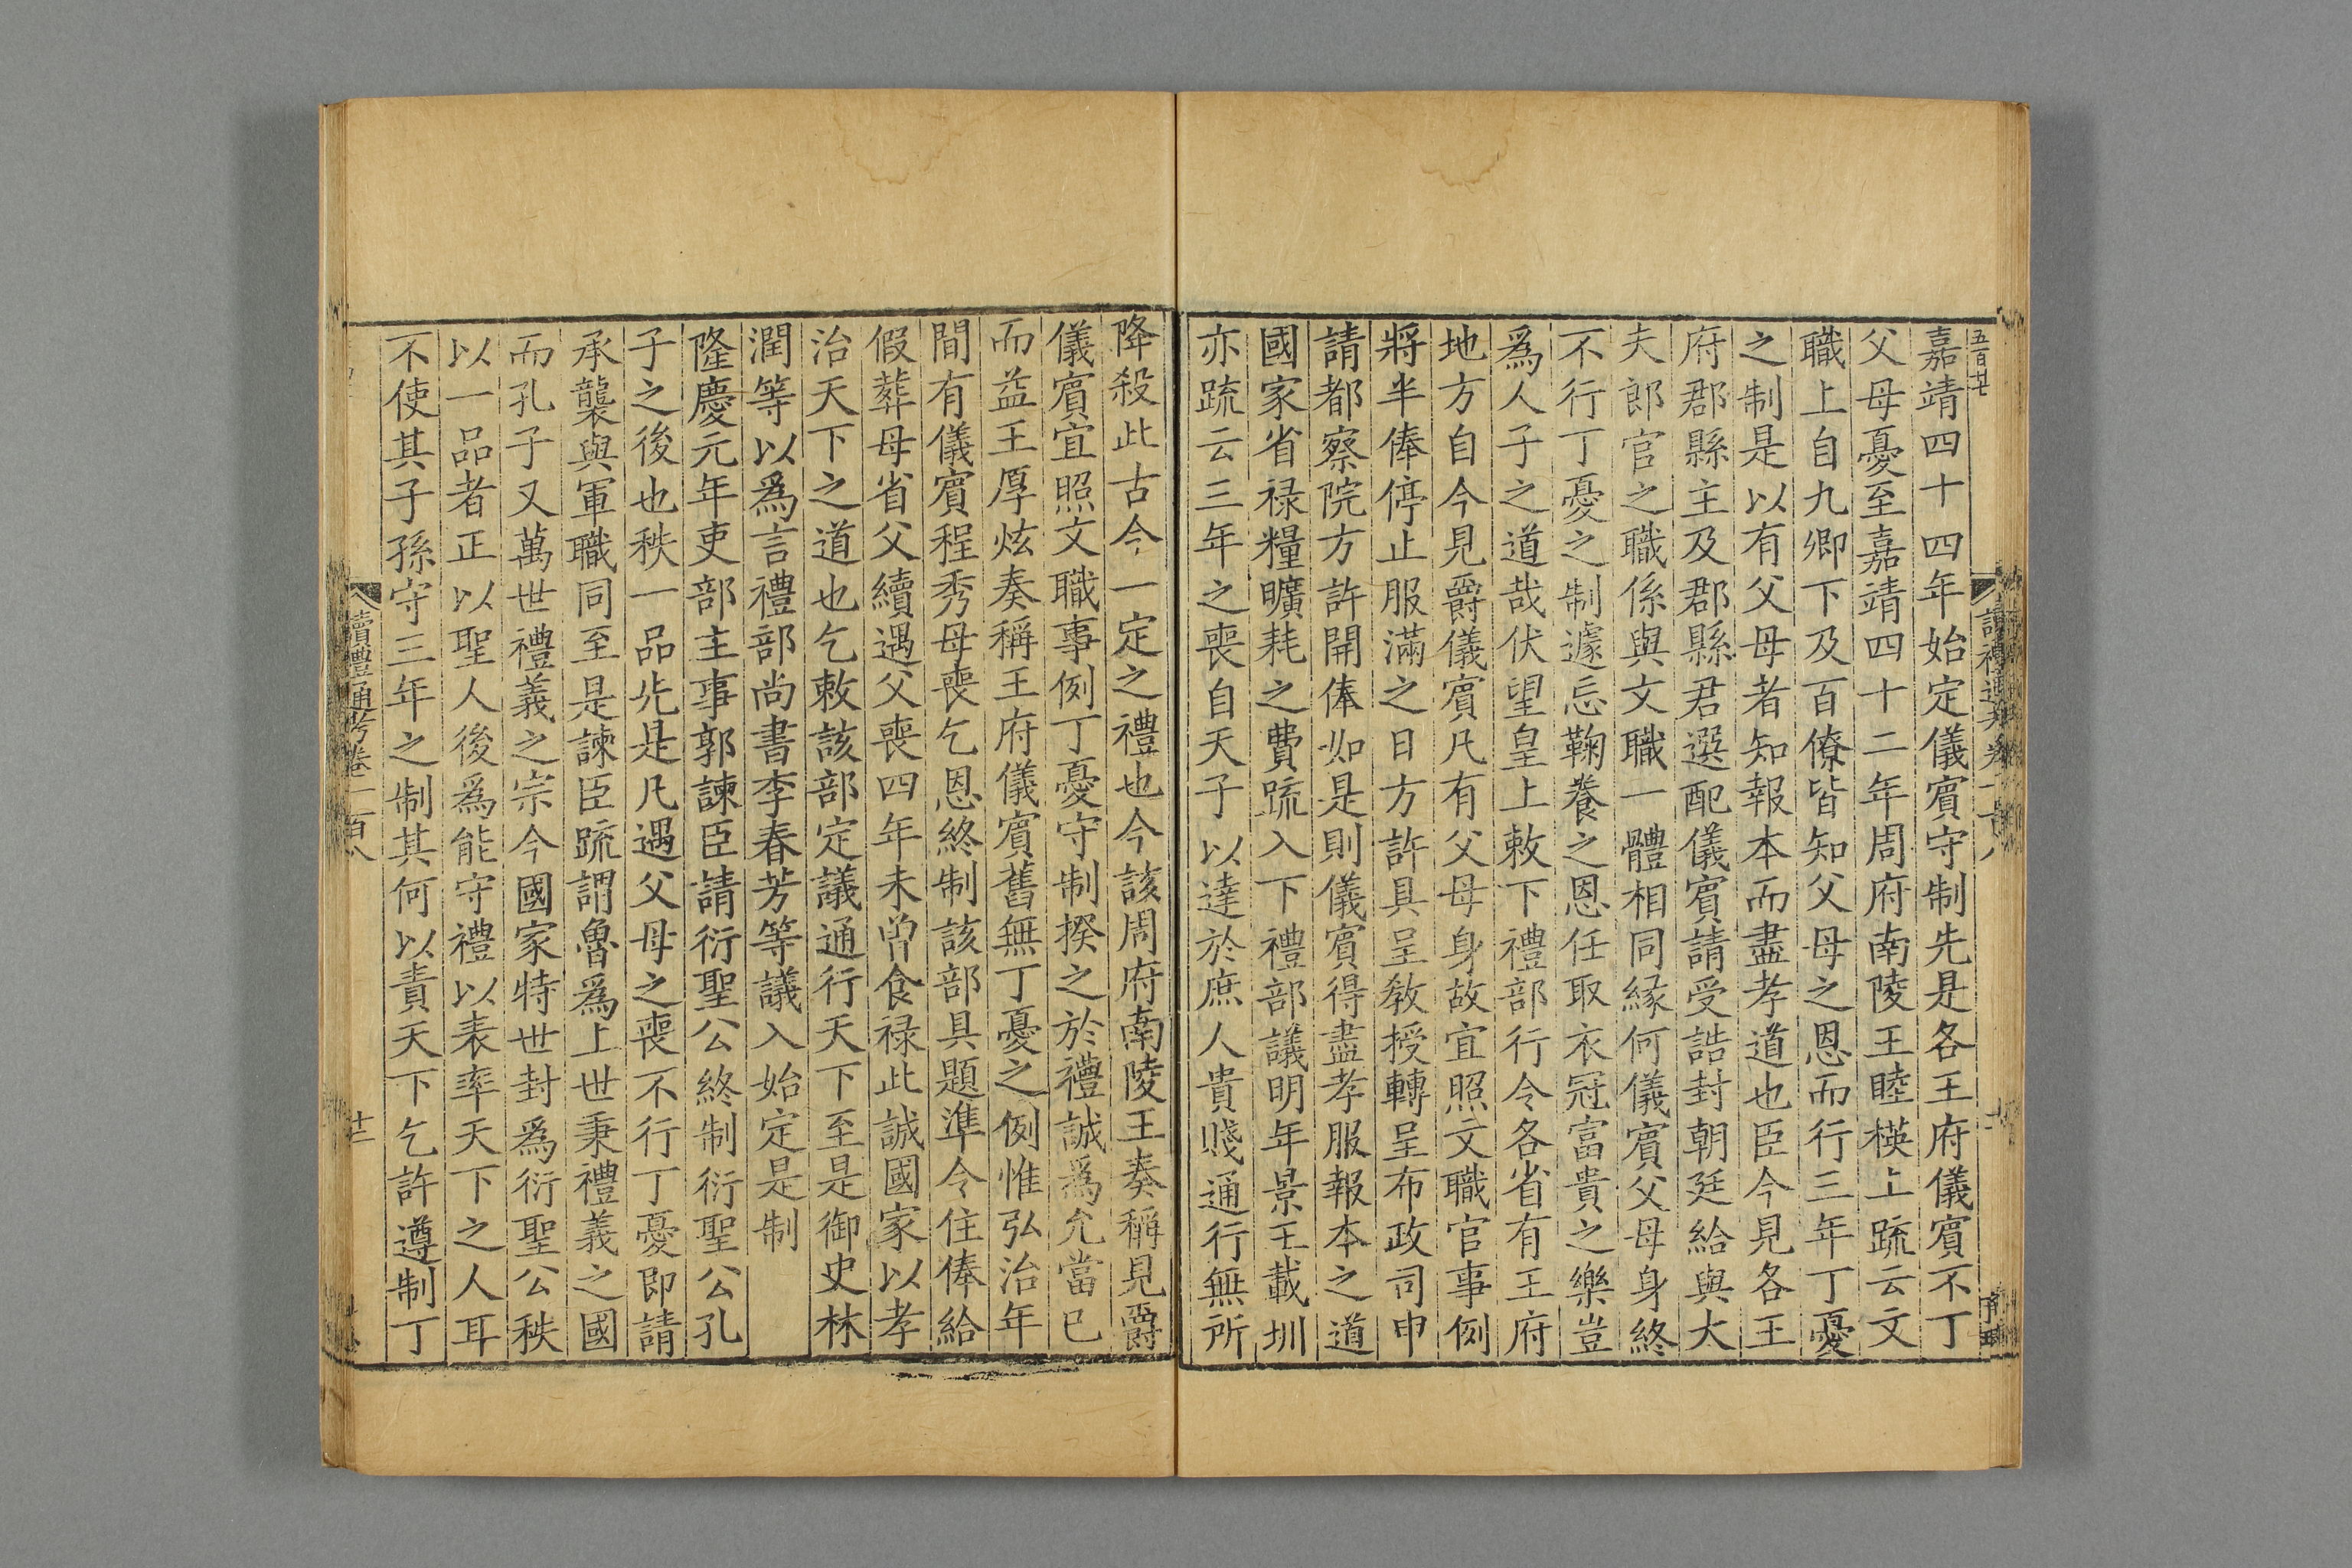 五百廿
嘉靖四十四年始定儀賓守制先是各王府儀賓不丁
父母憂至嘉靖四十二年周府南陵王睦楧上疏云文
職上自九卿下及百僚皆知父母之恩而行三年丁憂
之制是以有父母者知報本而盡孝道也臣今見各王
府郡縣主及郡縣君選配儀賓請受誥封朝廷給與大
夫郎官之職係與文職一體相同緣何儀賓父母身終
不行丁憂之制遽忘鞠養之恩任取衣冠富貴之樂豈
爲人子之道哉伏望皇上敕下禮部行令各省有王府
地方自今見爵儀賓凡有父母身故宜照文職官事例
將半俸停止服滿之日方許具呈敎授轉呈布政司申
請都察院方許開俸如是則儀賓得盡孝服報本之道
國家省祿糧曠耗之費疏入下禮部議明年景王載圳
亦疏云三年之喪自天子以達於庶人貴賤通行無所
降殺此古今一定之禮也今該周府南陵王奏稱見爵
儀賓宜照文職事例丁憂守制揆之於禮誠爲允當已
而益王厚炫奏稱王府儀賓舊無丁憂之例惟弘治年
間有儀賓程秀母喪乞恩終制該部具題準令住俸給
假葬母省父續遇父喪四年未曾食祿此誠國家以孝
治天下之道也乞敕該部定議通行天下至是御史林
潤等以爲言禮部尚書李春芳等議入始定是制
隆慶元年吏部主事郭諫臣請衍聖公終制衍聖公孔
子之後也秩一品先是凡遇父母之喪不行丁憂即請
承襲與軍職同至是諫臣疏謂魯爲上世秉禮義之國
而孔子又萬世禮義之宗今國家特世封爲衍聖公秩
以一品者正以聖人後爲能守禮以表率天下之人耳
不使其子孫守三年之制其何以責天下乞許遵制丁
讀禮通考卷一百八
十二